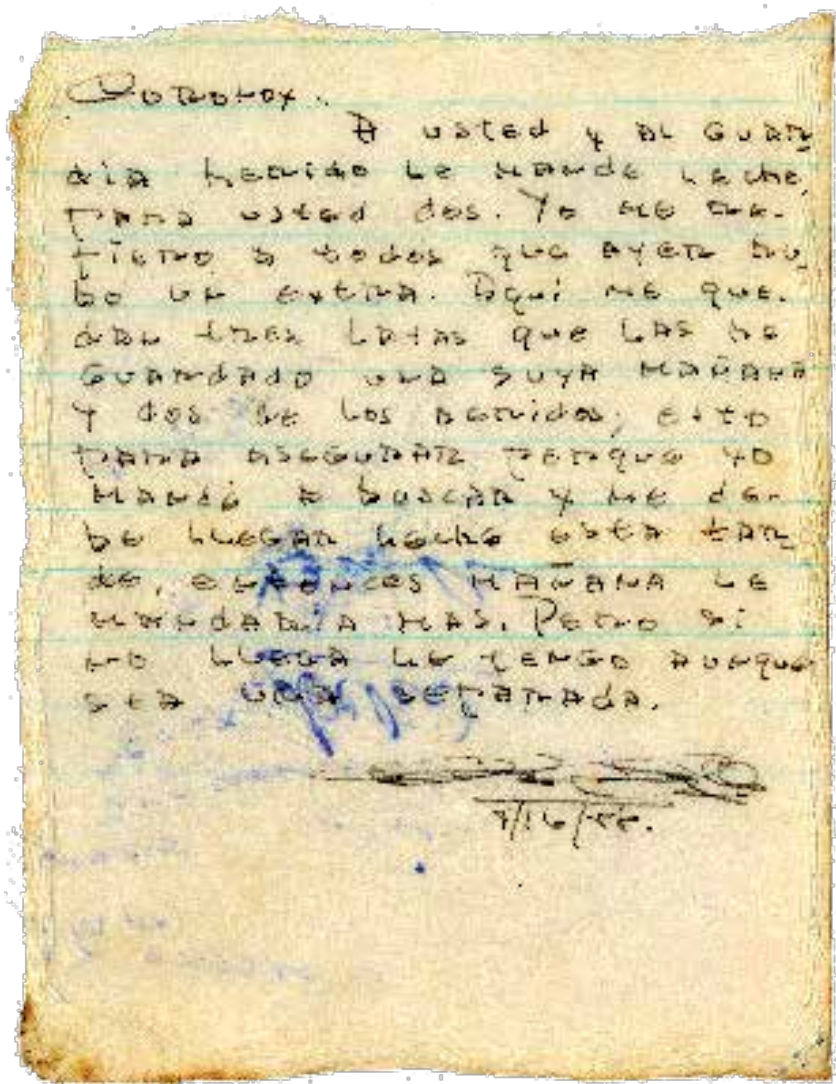 A usted y al guar
dia herido le mande leche
para usted dos. Yo me re-
fiero a todos que ayer hu
bo un extra. Aquí me que-
dan tres latas que las he
guardado una suya mañana
y dos de los heridos; esto
para asegurar porque yo
mandé a buscar y me de-
be llegar leche esta tar
de, entonces mañana le
mandaría mas. Pero si
no llega le tengo aunque
sea una separada.